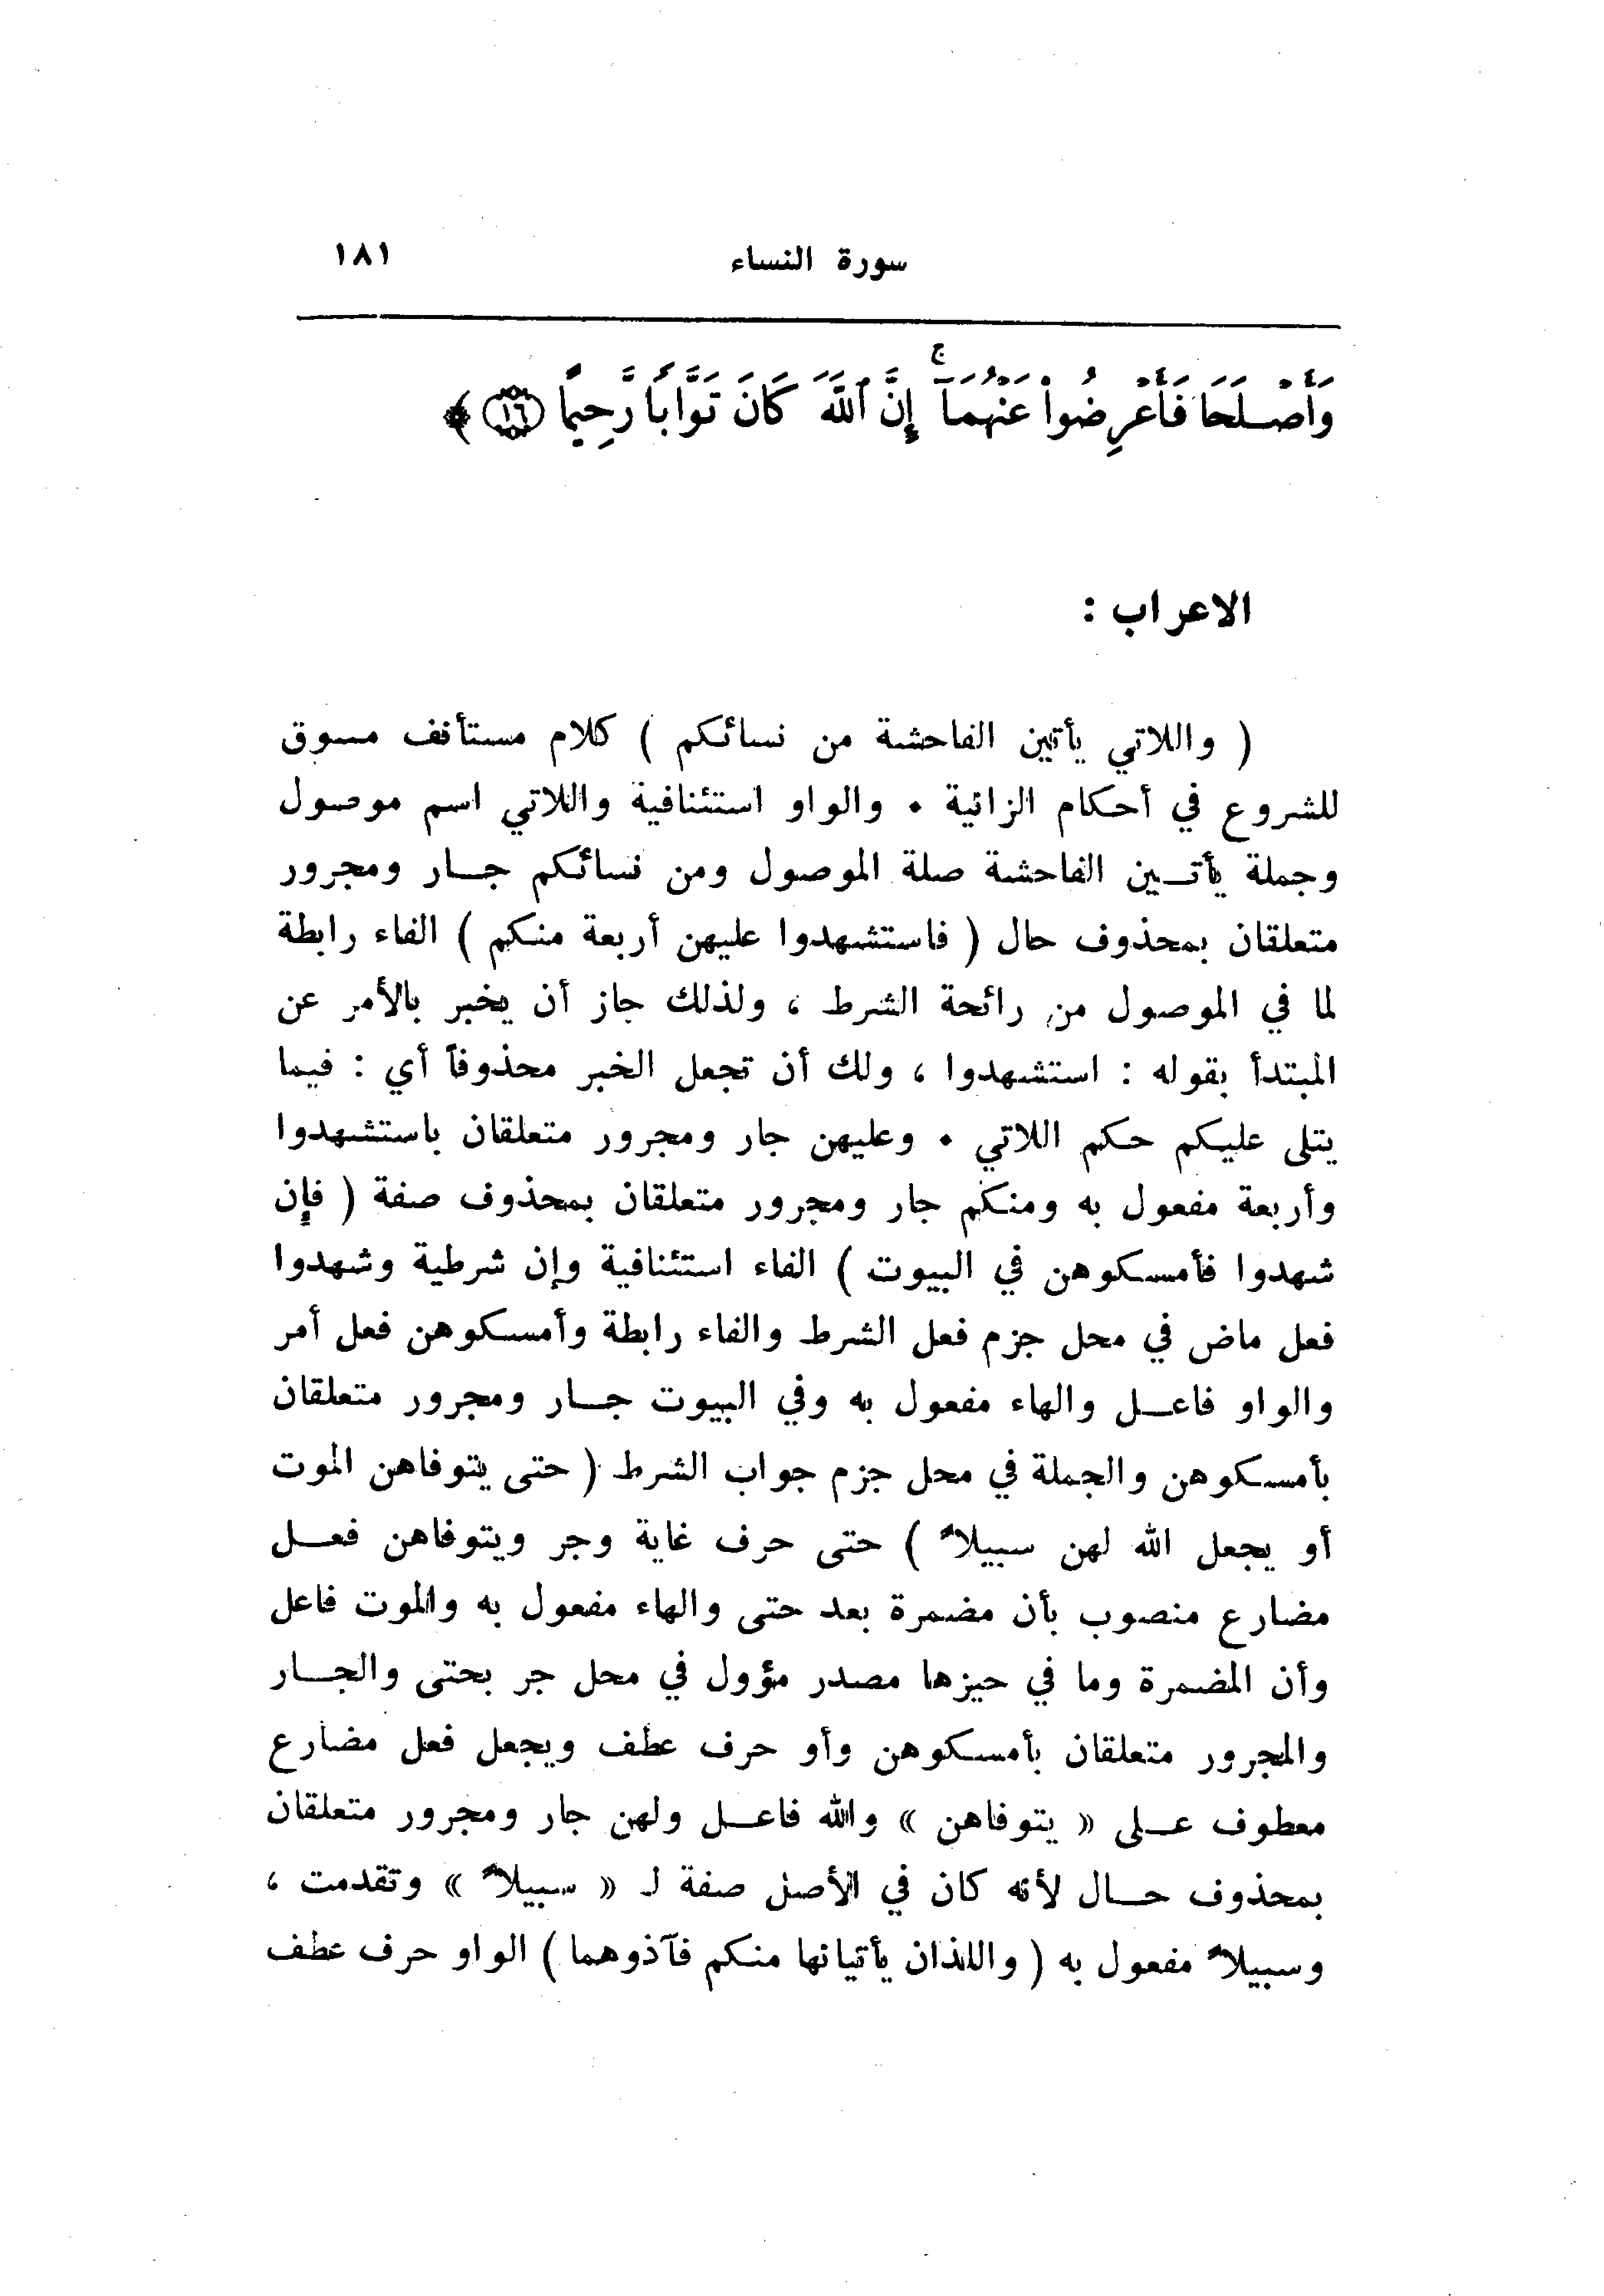 سورة النساء ١٨١
وَأَصْلَحَا فَأَعْرِضُواْ عَنْهُمَآ ۚ إِنَّ ٱللَّهَ كَانَ تَوَّابًا رَّحِيمًا ﴿١٦﴾
الاعراب :
( واللاتي يأتين الفاحشة من نسائكم ) كلام مستأنف مسوق
للشروع في أحكام الزانية ٠ والواو استئنافية واللاتي اسم موصول
وجملة يأتــين الفاحشة صلة الموصول ومن نسائكم جــار ومجرور
متعلقان بمحذوف حال ( فاستشهدوا عليهن أربعة منكم ) الفاء رابطة
لما في الموصول من رائحة الشرط ، ولذلك جاز أن يخبر بالأمر عن
المبتدأ بقوله : استشهدوا ، ولك أن تجعل الخبر محذوفاً أي : فيما
يتلى عليكم حكم اللاتي ٠ وعليهن جار ومجرور متعلقان باستشهدوا
وأربعة مفعول به ومنكم جار ومجرور متعلقان بمحذوف صفة ( فإن
شهدوا فأمسكوهن في البيوت ) الفاء استئنافية وإن شرطية وشهدوا
فعل ماض في محل جزم فعل الشرط والفاء رابطة وأمسكوهن فعل أمر
والواو فاعــل والهاء مفعول به وفي البيوت جــار ومجرور متعلقان
بأمسكوهن والجملة في محل جزم جواب الشرط ( حتى يتوفاهن الموت
أو يجعل الله لهن سبيلاً ) حتى حرف غاية وجر ويتوفاهن فعــل
مضارع منصوب بأن مضمرة بعد حتى والهاء مفعول به والموت فاعل
وأن المضمرة وما في حيزها مصدر مؤول في محل جر بحتى والجــار
والمجرور متعلقان بأمسكوهن وأو حرف عطف ويجعل فعل مضارع
معطوف عــلى « يتوفاهن » والله فاعــل ولهن جار ومجرور متعلقان
بمحذوف حــال لأنه كان في الأصل صفة لـ « سبيلاً » وتقدمت ،
وسبيلاً مفعول به ( واللذان يأتيانها منكم فآذوهما ) الواو حرف عطف